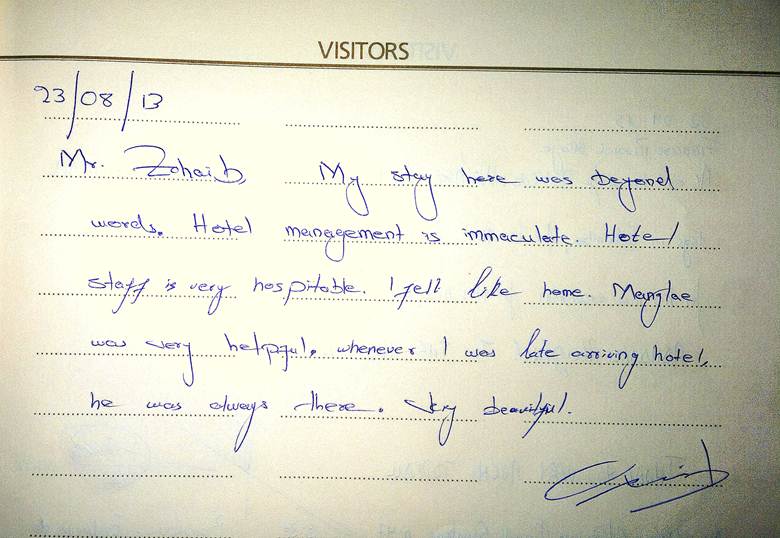 VISITORS
23/08/13
Mr. Zohaib, My stay here was beyond
words. Hotel management is immaculate. Hotel
staff is very hospitable. I fell like home. Manglae
was very helpful, whenever I was late arriving hotel,
he was always there. Very beautiful.